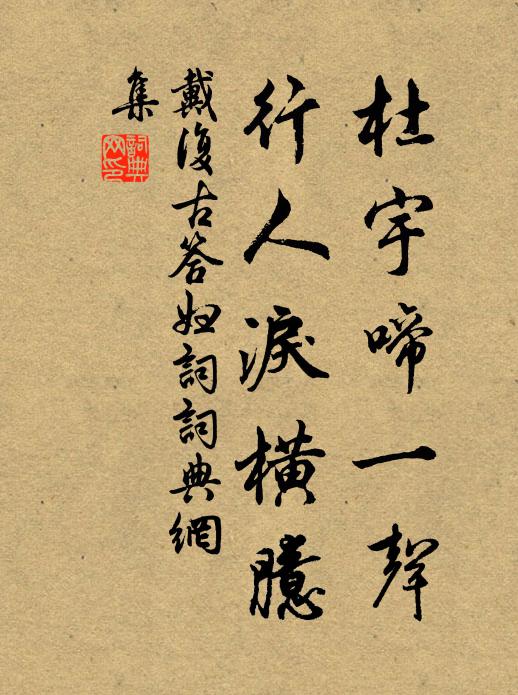 杜宇啼一聲
行人淚橫臆
戴復古答婦詞詞典網
集
詞典网印